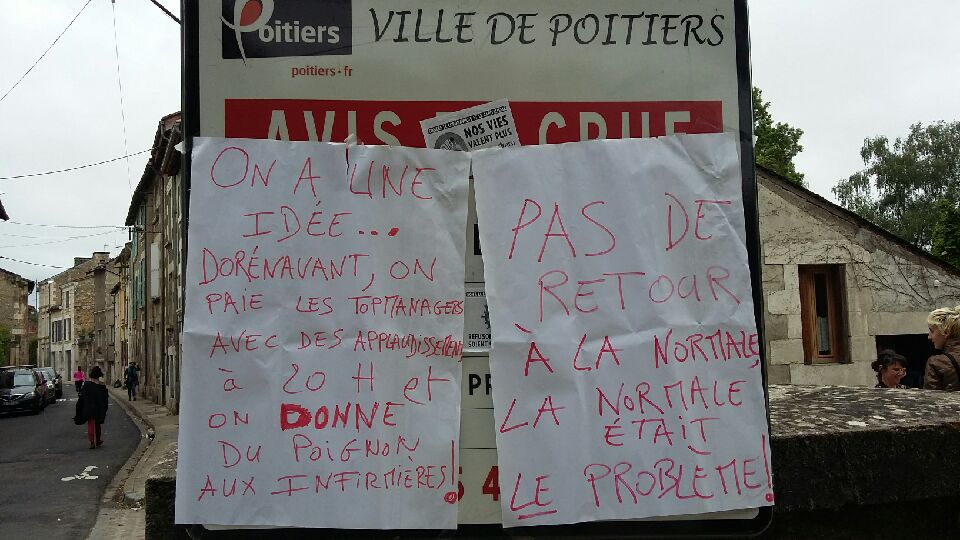 Poitiers
VILLE DE POITIERS
poitiers•fr
AVIS CRUE
NOS VIES
VALENT PLUS
ON A UNE
IDÉE...
DORÉNAVANT, ON
PAIE LES TOPMANAGERS
AVEC DES APPLAUDISSEMENTS
à 20 H et
ON DONNE
DU POIGNON
AUX INFIRMIÈRES!
PAS DE
RETOUR
À LA NORMALE,
LA NORMALE
ÉTAIT
LE PROBLÈME!
PR
4